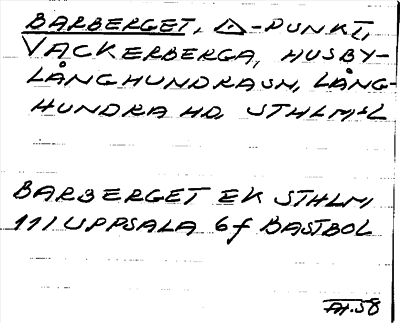 BARBERGET, △-PUNKT,
VACKERBERGA, HUSBY-
LÅNGHUNDRASN, LÅNG-
HUNDRA HD, STHLMSL
BARBERGET EK STHLM
111 UPPSALA 6f BASTBOL
AH.58